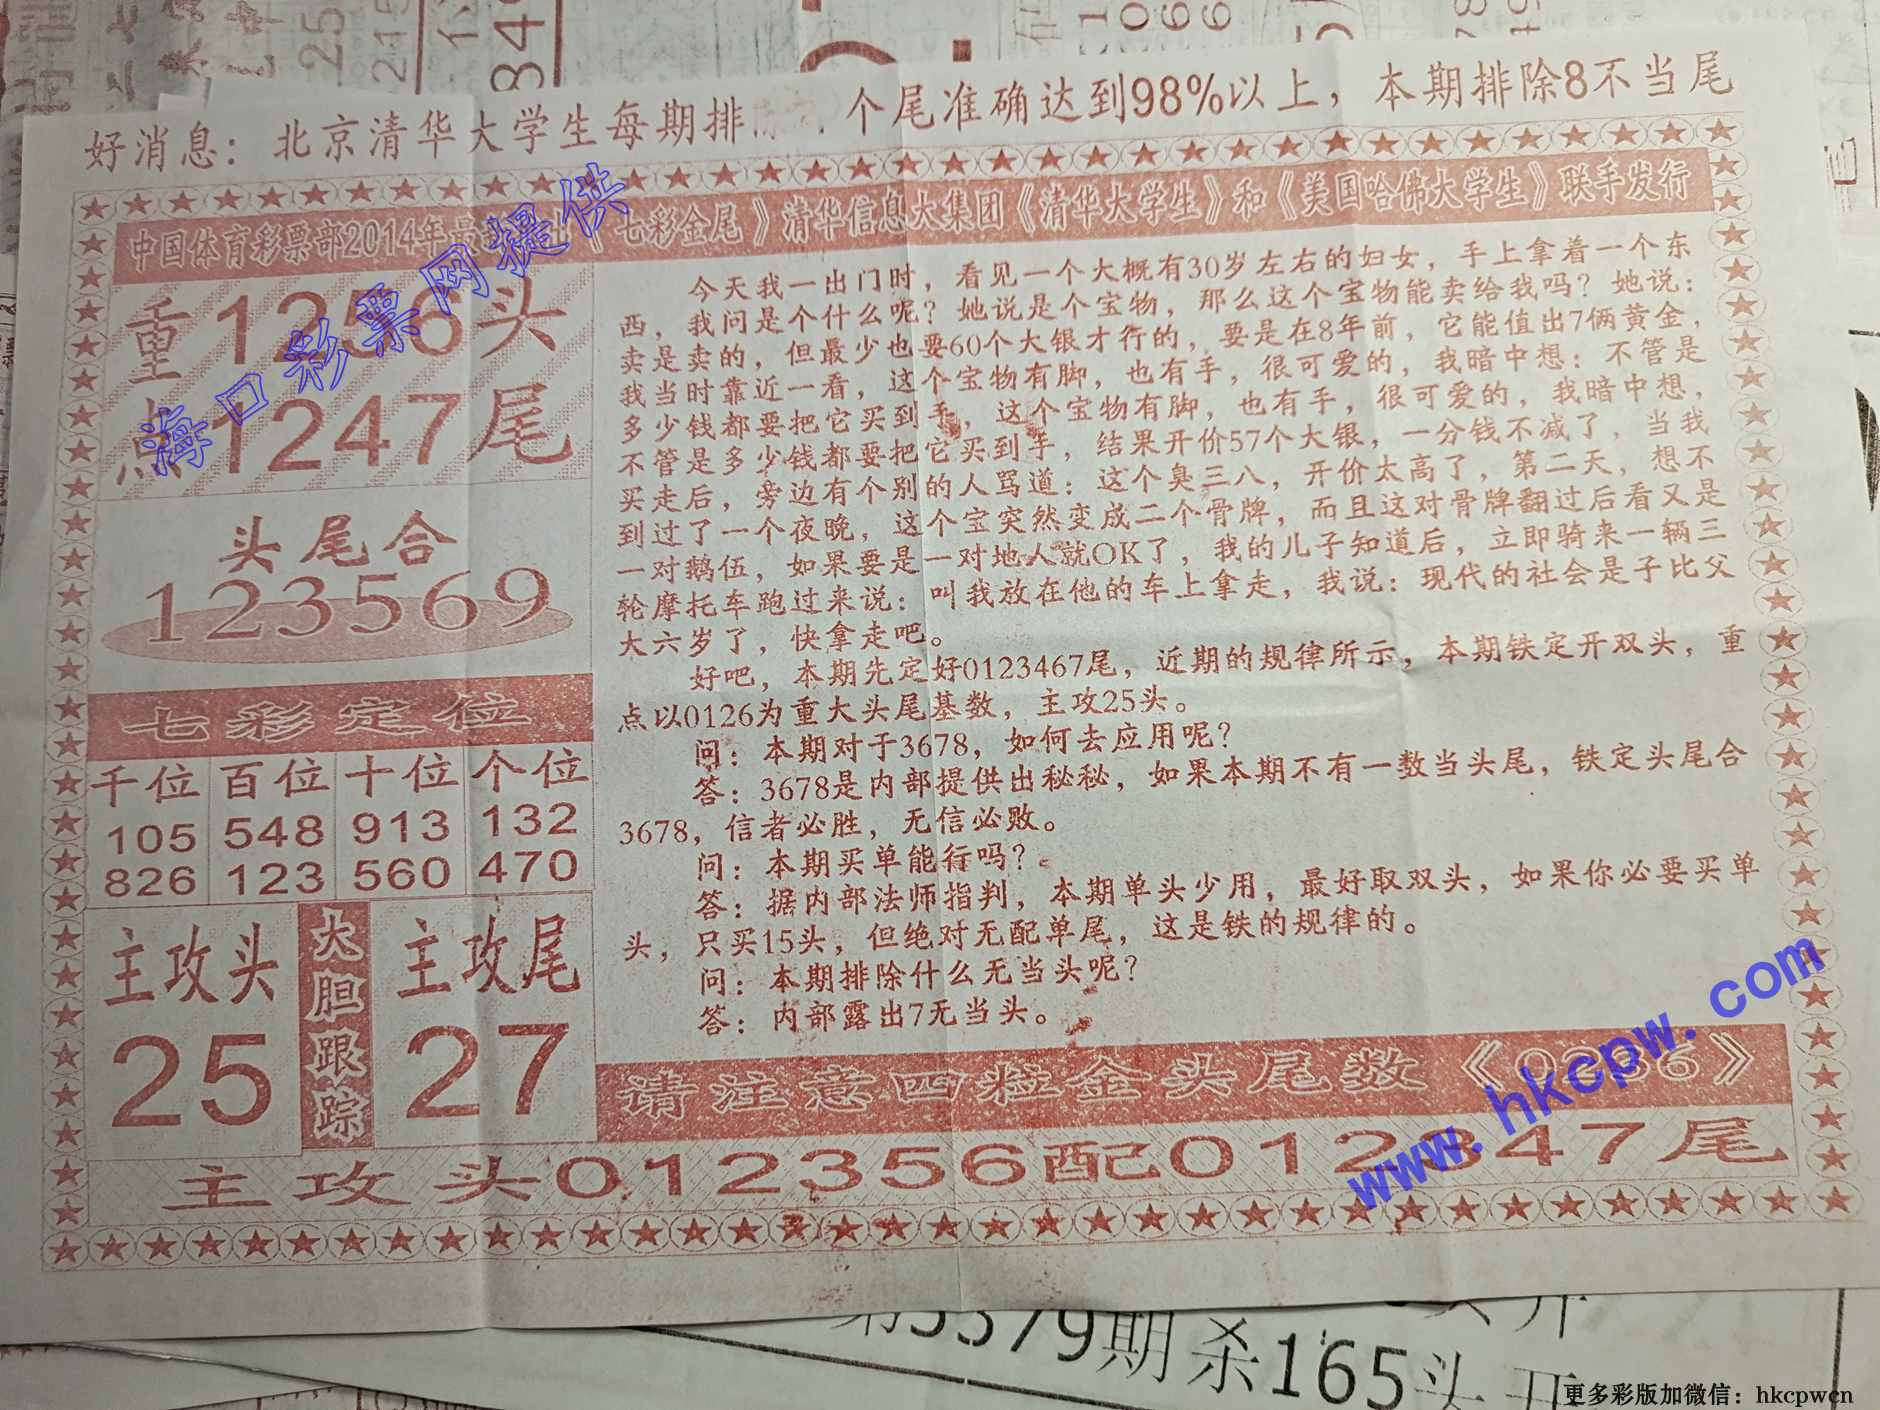 好消息：北京清华大学生每期排 个尾准确达到98%以上，本期排除8不当尾
中国体育彩票部2014年最 《七彩金尾》清华信息大集团《清华大学生》和《美国哈佛大学生》联手发行
重点
1256头
1247尾
头尾合
123569
七彩定位
千位 百位 十位 个位
105 548 913 132
826 123 560 470
主攻头
25
大胆跟踪
主攻尾
27
今天我一出门时，看见一个大概有30岁左右的妇女，手上拿着一个东
西，我问是个什么呢？她说是个宝物，那么这个宝物能卖给我吗？她说：
卖是卖的，但最少也要60个大银才行的，要是在8年前，它能值出7俩黄金，
我当时靠近一看，这个宝物有脚，也有手，很可爱的，我暗中想：不管是
多少钱都要把它买到手，这个宝物有脚，也有手，很可爱的，我暗中想，
不管是多少钱都要把它买到手，结果开价57个大银，一分钱不减了，当我
买走后，旁边有个别的人骂道：这个臭三八，开价太高了，第二天，想不
到过了一个夜晚，这个宝突然变成二个骨牌，而且这对骨牌翻过后看又是
一对鹅伍，如果要是一对地人就OK了，我的儿子知道后，立即骑来一辆三
轮摩托车跑过来说：叫我放在他的车上拿走，我说：现代的社会是子比父
大六岁了，快拿走吧。
好吧，本期先定好0123467尾，近期的规律所示，本期铁定开双头，重
点以0126为重大头尾基数，主攻25头。
问：本期对于3678，如何去应用呢？
答：3678是内部提供出秘秘，如果本期不有一数当头尾，铁定头尾合
3678，信者必胜，无信必败。
问：本期买单能行吗？
答：据内部法师指判，本期单头少用，最好取双头，如果你必要买单
头，只买15头，但绝对无配单尾，这是铁的规律的。
问：本期排除什么无当头呢？
答：内部露出7无当头。
请注意四粒金头尾数《0236》
主攻头012356配012347尾
海口彩票网提供
www.hkcpw.com
第3379期杀165头开
更多彩版加微信：hkcpwcn